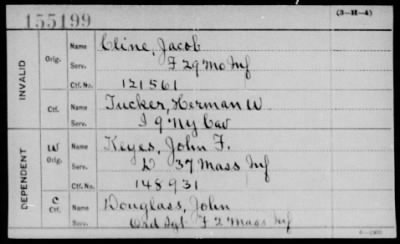 155199
(3-H-4)
INVALID
Orig. Name Cline, Jacob
Serv. F 29 Mo Inf
Ctf. No. 121561
Ctf. Name Tucker, Herman W
Serv. I 9 Ny Cav
DEPENDENT
W Orig. Name Keyes, John F.
Serv. D 37 Mass Inf
Ctf. No. 148931
C Ctf. Name Douglass, John
Serv. Ord Sgt F 2 Mass Inf